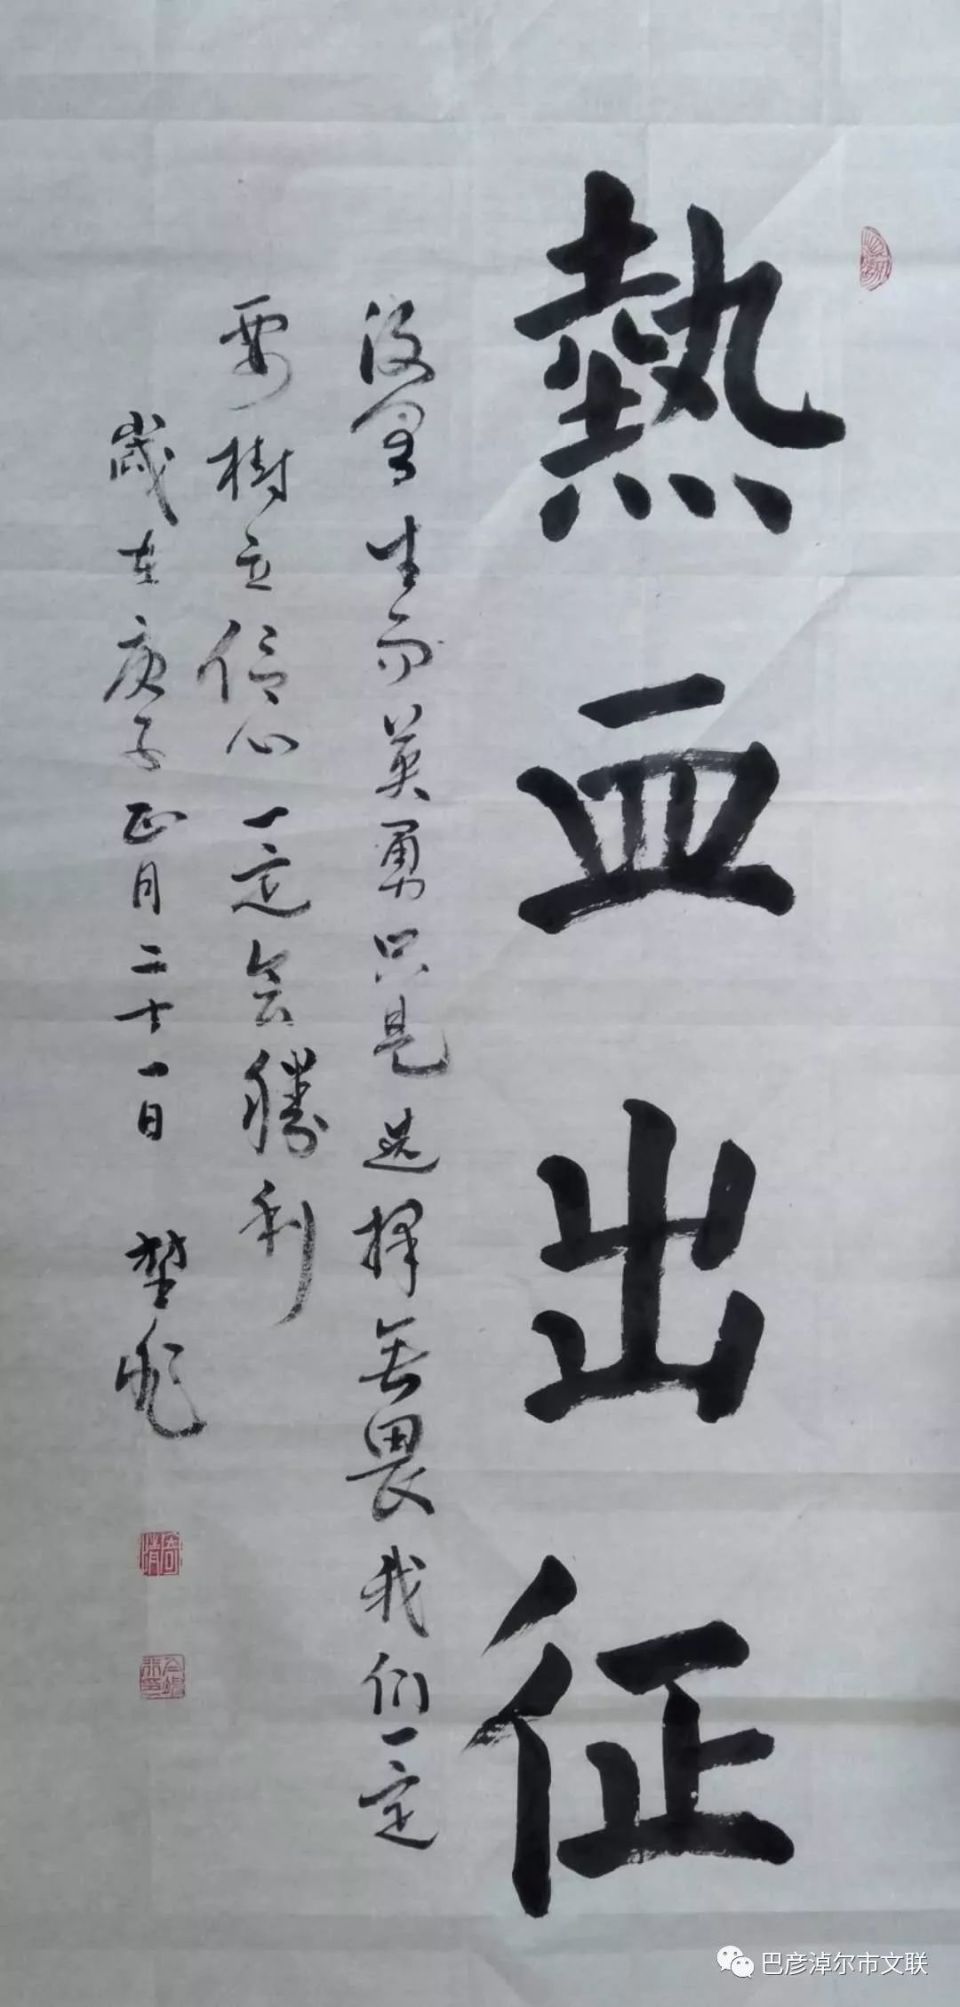 熱血出征
没有生而英勇只是选择无畏我们一定
要樹立信心一定会勝利
歲在庚子正月二十一日
巴彦淖尔市文联